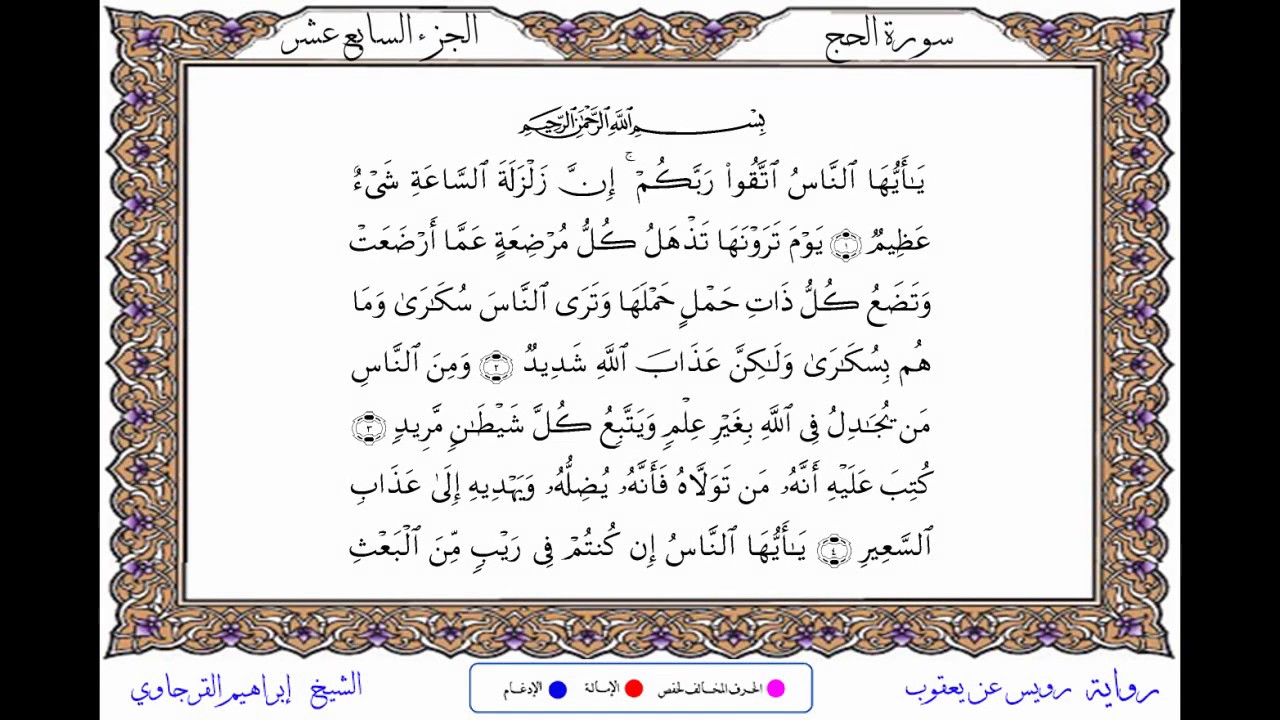 سورة الحج
الجزء السابع عشر
بِسْمِ ٱللَّهِ ٱلرَّحْمَٰنِ ٱلرَّحِيمِ
يَٰٓأَيُّهَا ٱلنَّاسُ ٱتَّقُوا۟ رَبَّكُمْ ۚ إِنَّ زَلْزَلَةَ ٱلسَّاعَةِ شَىْءٌ
عَظِيمٌ ١ يَوْمَ تَرَوْنَهَا تَذْهَلُ كُلُّ مُرْضِعَةٍ عَمَّا أَرْضَعَتْ
وَتَضَعُ كُلُّ ذَاتِ حَمْلٍ حَمْلَهَا وَتَرَى ٱلنَّاسَ سُكَٰرَىٰ وَمَا
هُم بِسُكَٰرَىٰ وَلَٰكِنَّ عَذَابَ ٱللَّهِ شَدِيدٌ ٢ وَمِنَ ٱلنَّاسِ
مَن يُجَٰدِلُ فِى ٱللَّهِ بِغَيْرِ عِلْمٍ وَيَتَّبِعُ كُلَّ شَيْطَٰنٍ مَّرِيدٍ ٣
كُتِبَ عَلَيْهِ أَنَّهُۥ مَن تَوَلَّاهُ فَأَنَّهُۥ يُضِلُّهُۥ وَيَهْدِيهِ إِلَىٰ عَذَابِ
ٱلسَّعِيرِ ٤ يَٰٓأَيُّهَا ٱلنَّاسُ إِن كُنتُمْ فِى رَيْبٍ مِّنَ ٱلْبَعْثِ
رواية رويس عن يعقوب
الحرف المخالف لحفص الإمالة الإدغام
الشيخ إبراهيم القرجاوي